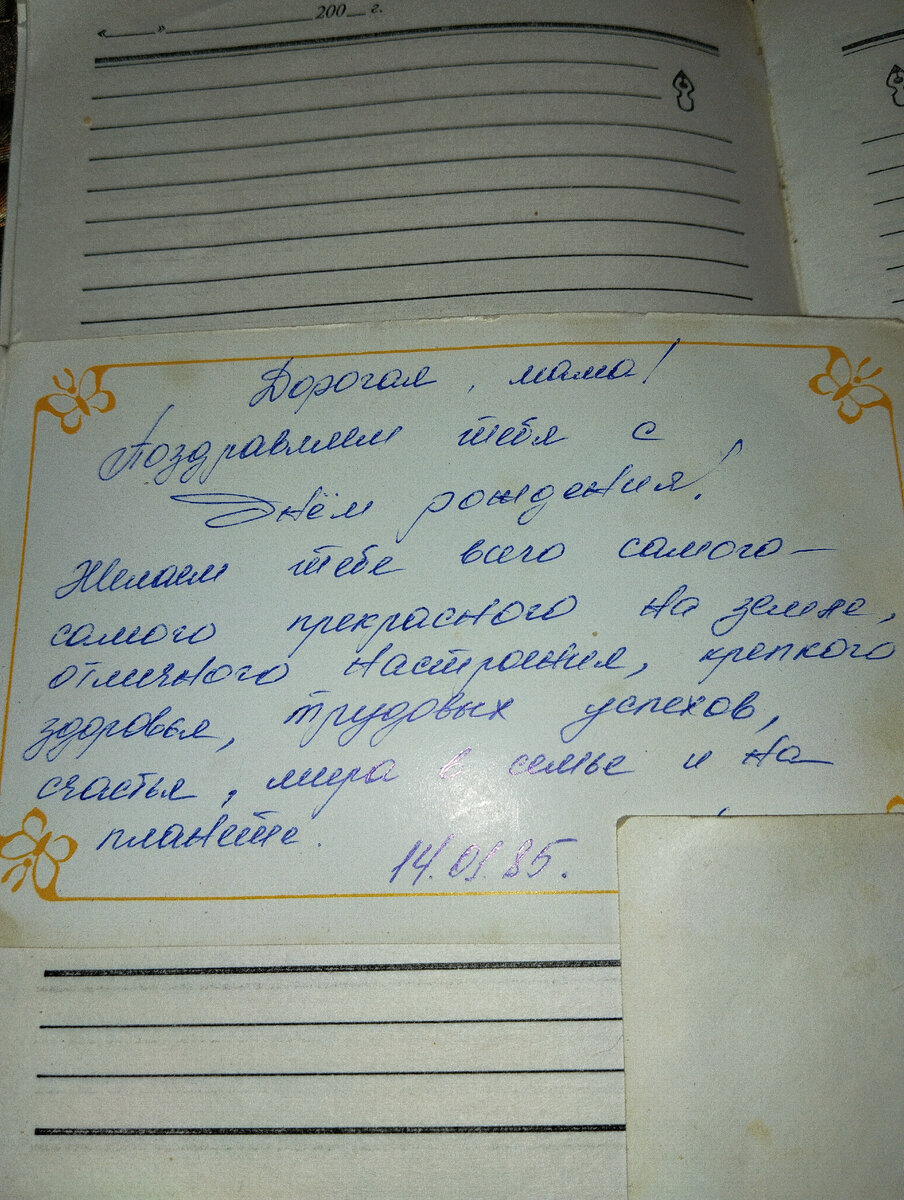 «____»______________200__г.
Дорогая, мама!
Поздравляем тебя с
Днём рождения!
Желаем тебе всего самого-
самого прекрасного на земле,
отличного настроения, крепкого
здоровья, трудовых успехов,
счастья, мира в семье и на
планете.
14.01.85.